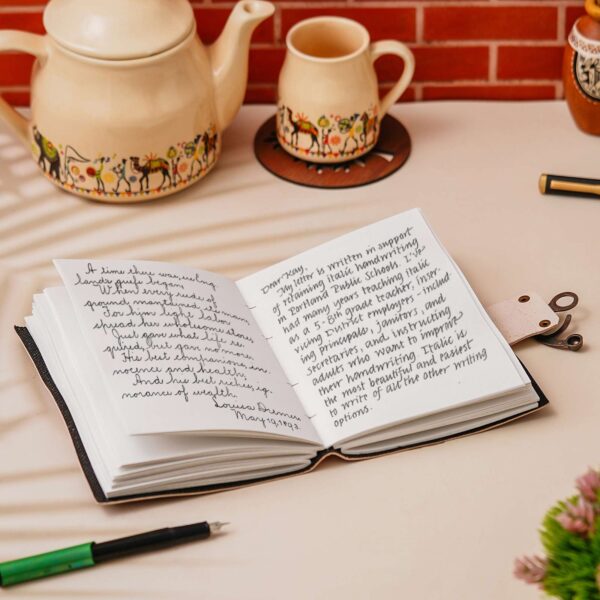 A time there was, ere Eng
lands griefs began,
When every rude of
ground maintained its man
For him light labor
spread her wholesome store,
Just gave what life re
quired, but gave no more,
His best companions, in
nocence and health;
And his best riches, ig
norance of wealth.
Louisa
May 19, 1893.
Dear Kay,
My letter is written in support
of retaining italic handwriting
in Portland Public Schools. I've
had many years teaching italic
as a 5-8th grade teacher, inser-
vicing District employees - includ-
ing principals, janitors, and
secretaries, and instructing
adults who want to improve
their handwriting Italic is
the most beautiful and easiest
to write of all the other writing
options.